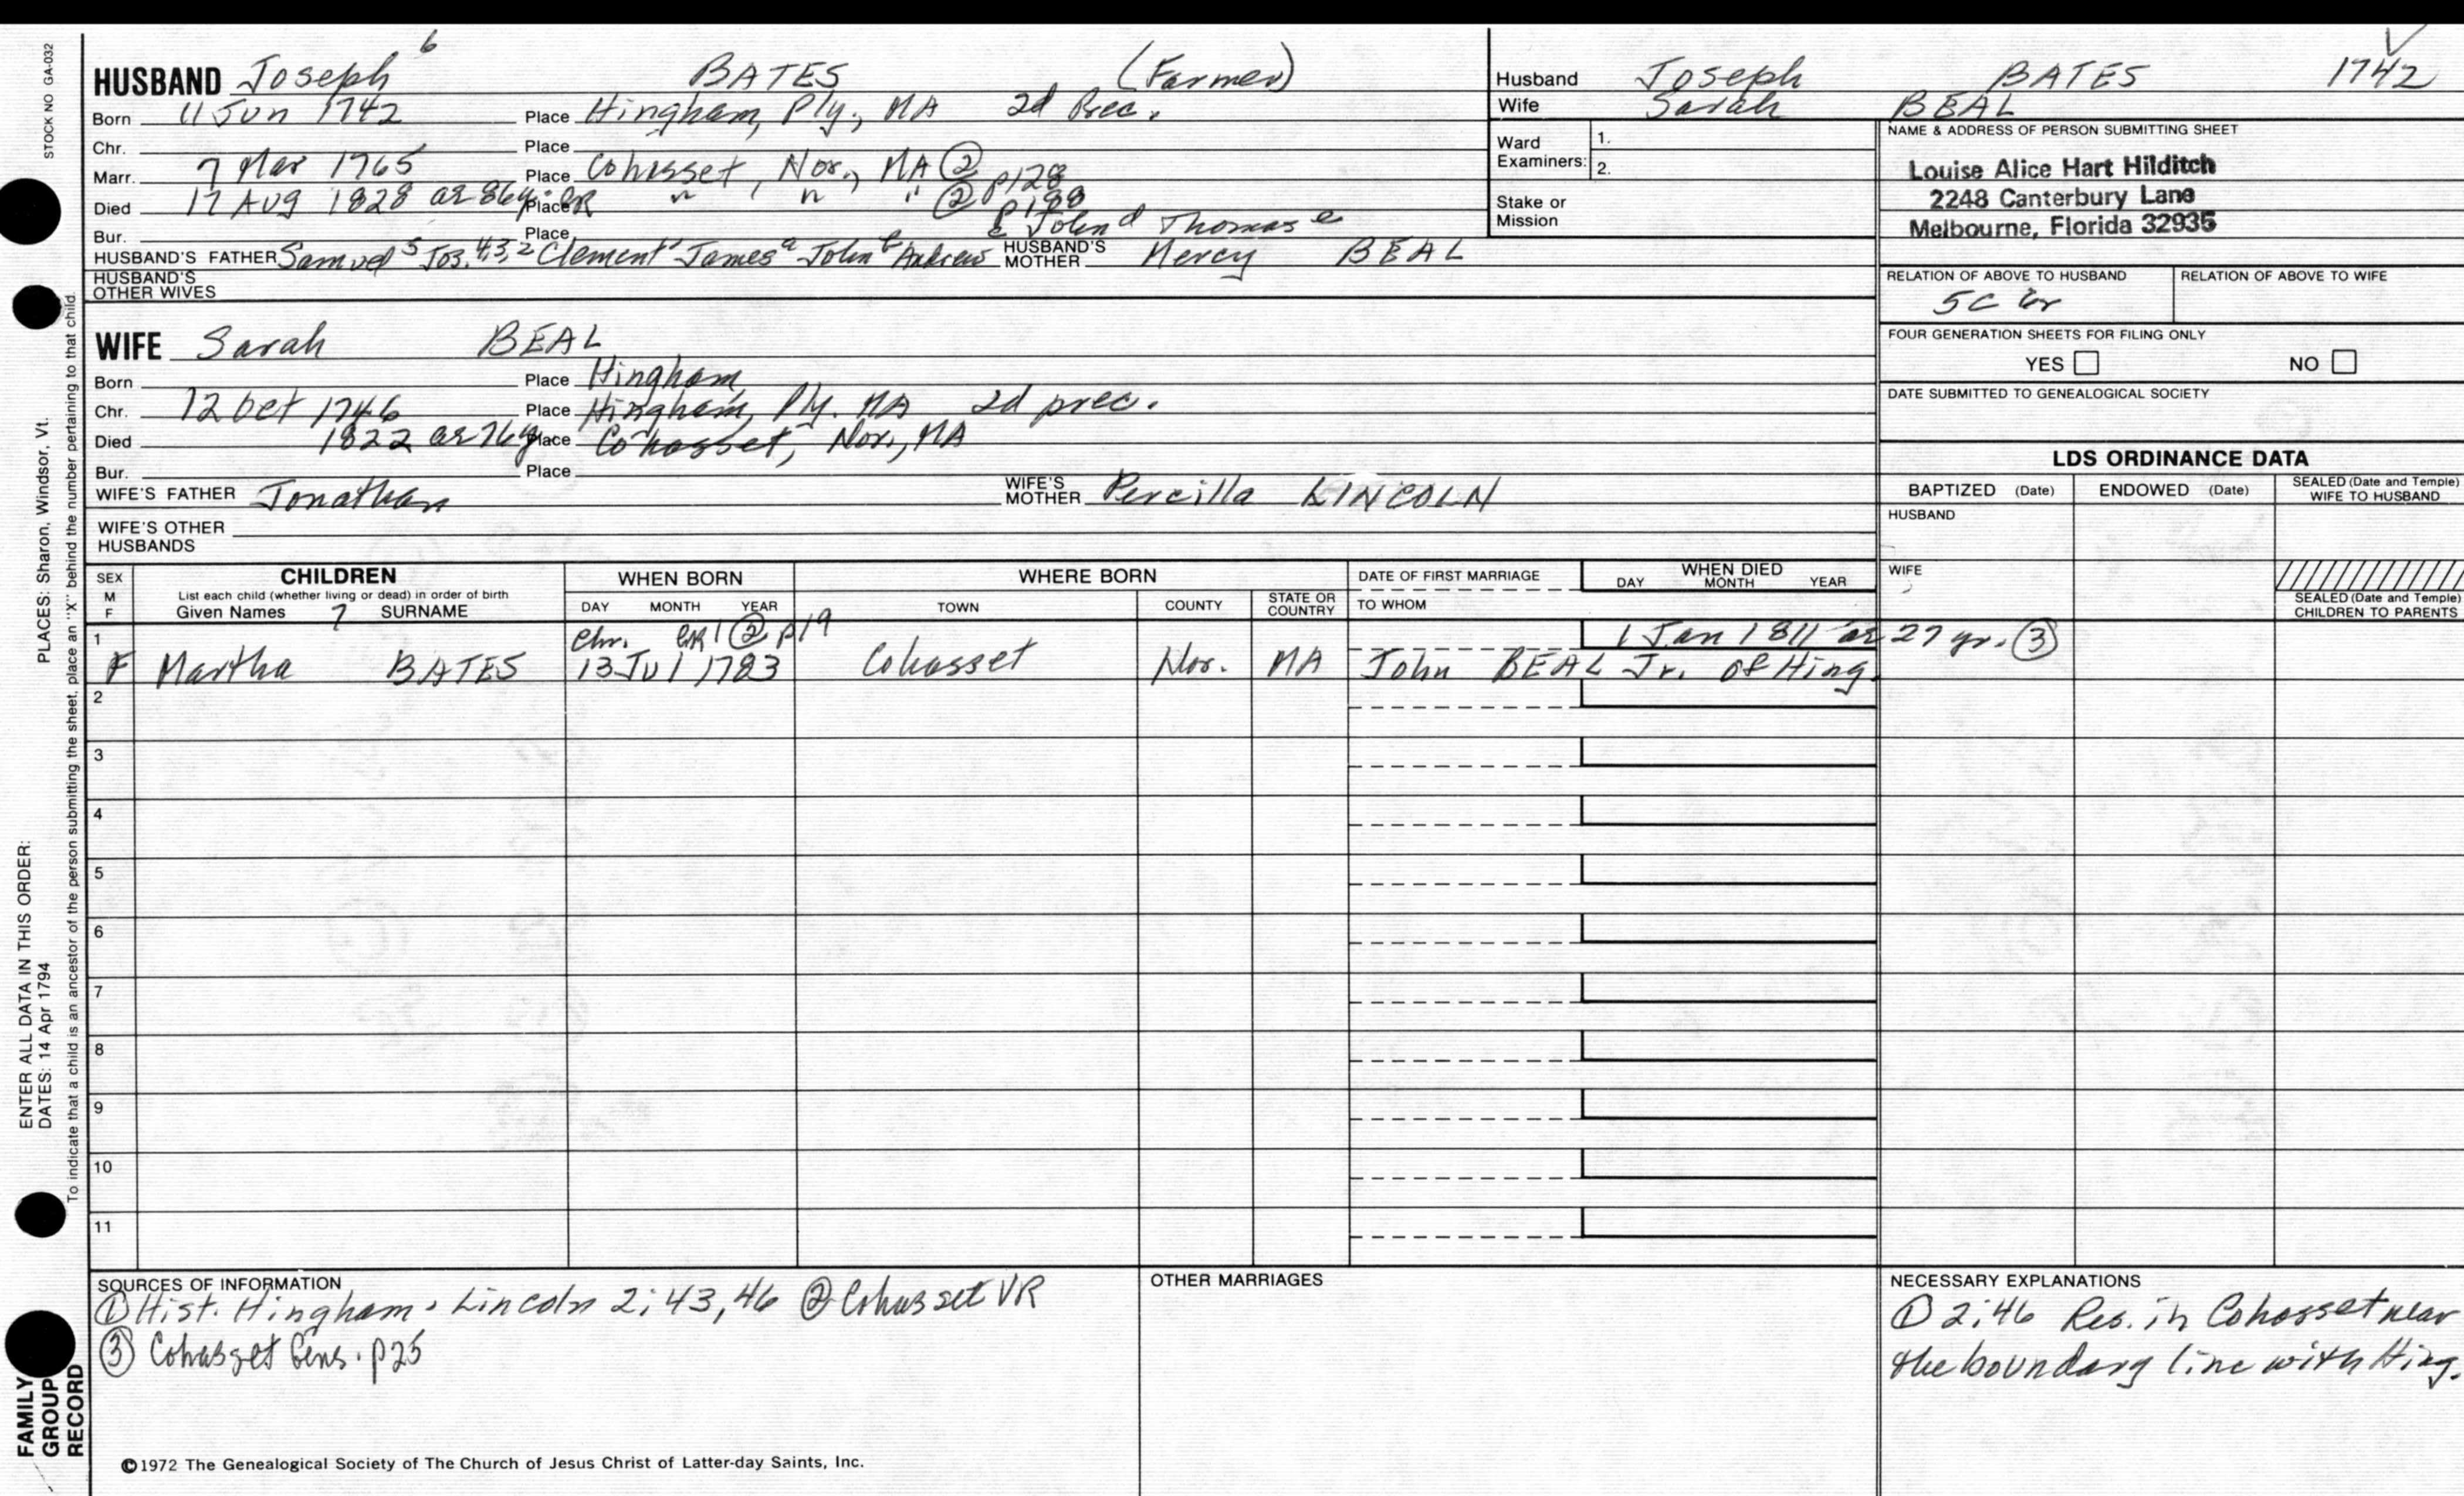 STOCK NO GA-032
HUSBAND Joseph 6 BATES (Farmer)
Born 11 Jun 1742 Place Hingham, Ply., MA 2d Prec.
Chr. Place
Marr. 7 Mar 1765 Place Cohasset, Nor., MA ② p128
Died 17 Aug 1828 ae 86y. CR Place " " " ② p188
Bur. Place c John d Thomas e
HUSBAND'S FATHER Samuel 5 Jos. 4,3,2 Clement 1 James a John b Andrew HUSBAND'S MOTHER Mercy BEAL
HUSBAND'S OTHER WIVES
WIFE Sarah BEAL
Born Place Hingham
Chr. 12 Oct 1746 Place Hingham, Ply. MA 2d prec.
Died 1822 ae 76y Place Cohasset, Nor., MA
Bur. Place
WIFE'S FATHER Jonathan WIFE'S MOTHER Percilla LINCOLN
WIFE'S OTHER HUSBANDS
Husband Joseph BATES 1742
Wife Sarah BEAL
Ward Examiners: 1.
2.
Stake or Mission
NAME & ADDRESS OF PERSON SUBMITTING SHEET
Louise Alice Hart Hilditch
2248 Canterbury Lane
Melbourne, Florida 32935
RELATION OF ABOVE TO HUSBAND RELATION OF ABOVE TO WIFE
5C
FOUR GENERATION SHEETS FOR FILING ONLY
YES NO
DATE SUBMITTED TO GENEALOGICAL SOCIETY
LDS ORDINANCE DATA
BAPTIZED (Date) ENDOWED (Date) SEALED (Date and Temple) WIFE TO HUSBAND
HUSBAND
WIFE
SEALED (Date and Temple) CHILDREN TO PARENTS
SEX M F
CHILDREN
List each child (whether living or dead) in order of birth
Given Names 7 SURNAME
WHEN BORN
DAY MONTH YEAR
WHERE BORN
TOWN COUNTY STATE OR COUNTRY
DATE OF FIRST MARRIAGE
TO WHOM
WHEN DIED
DAY MONTH YEAR
1 Chr. CR1 ② p19 1 Jan 1811 ae 27 yr. ③
F Martha BATES 13 Jul 1783 Cohasset Nor. MA John BEAL Jr. of Hing.
2
3
4
5
6
7
8
9
10
11
SOURCES OF INFORMATION
① Hist. Hingham, Lincoln 2:43,46 ② Cohasset VR
③ Cohasset Gens. p25
OTHER MARRIAGES
NECESSARY EXPLANATIONS
① 2:46 Res. in Cohasset near
the boundary line with Hing.
©1972 The Genealogical Society of The Church of Jesus Christ of Latter-day Saints, Inc.
ENTER ALL DATA IN THIS ORDER:
DATES: 14 Apr 1794 PLACES: Sharon, Windsor, Vt.
To indicate that a child is an ancestor of the person submitting the sheet, place an "X" behind the number pertaining to that child.
FAMILY
GROUP
RECORD